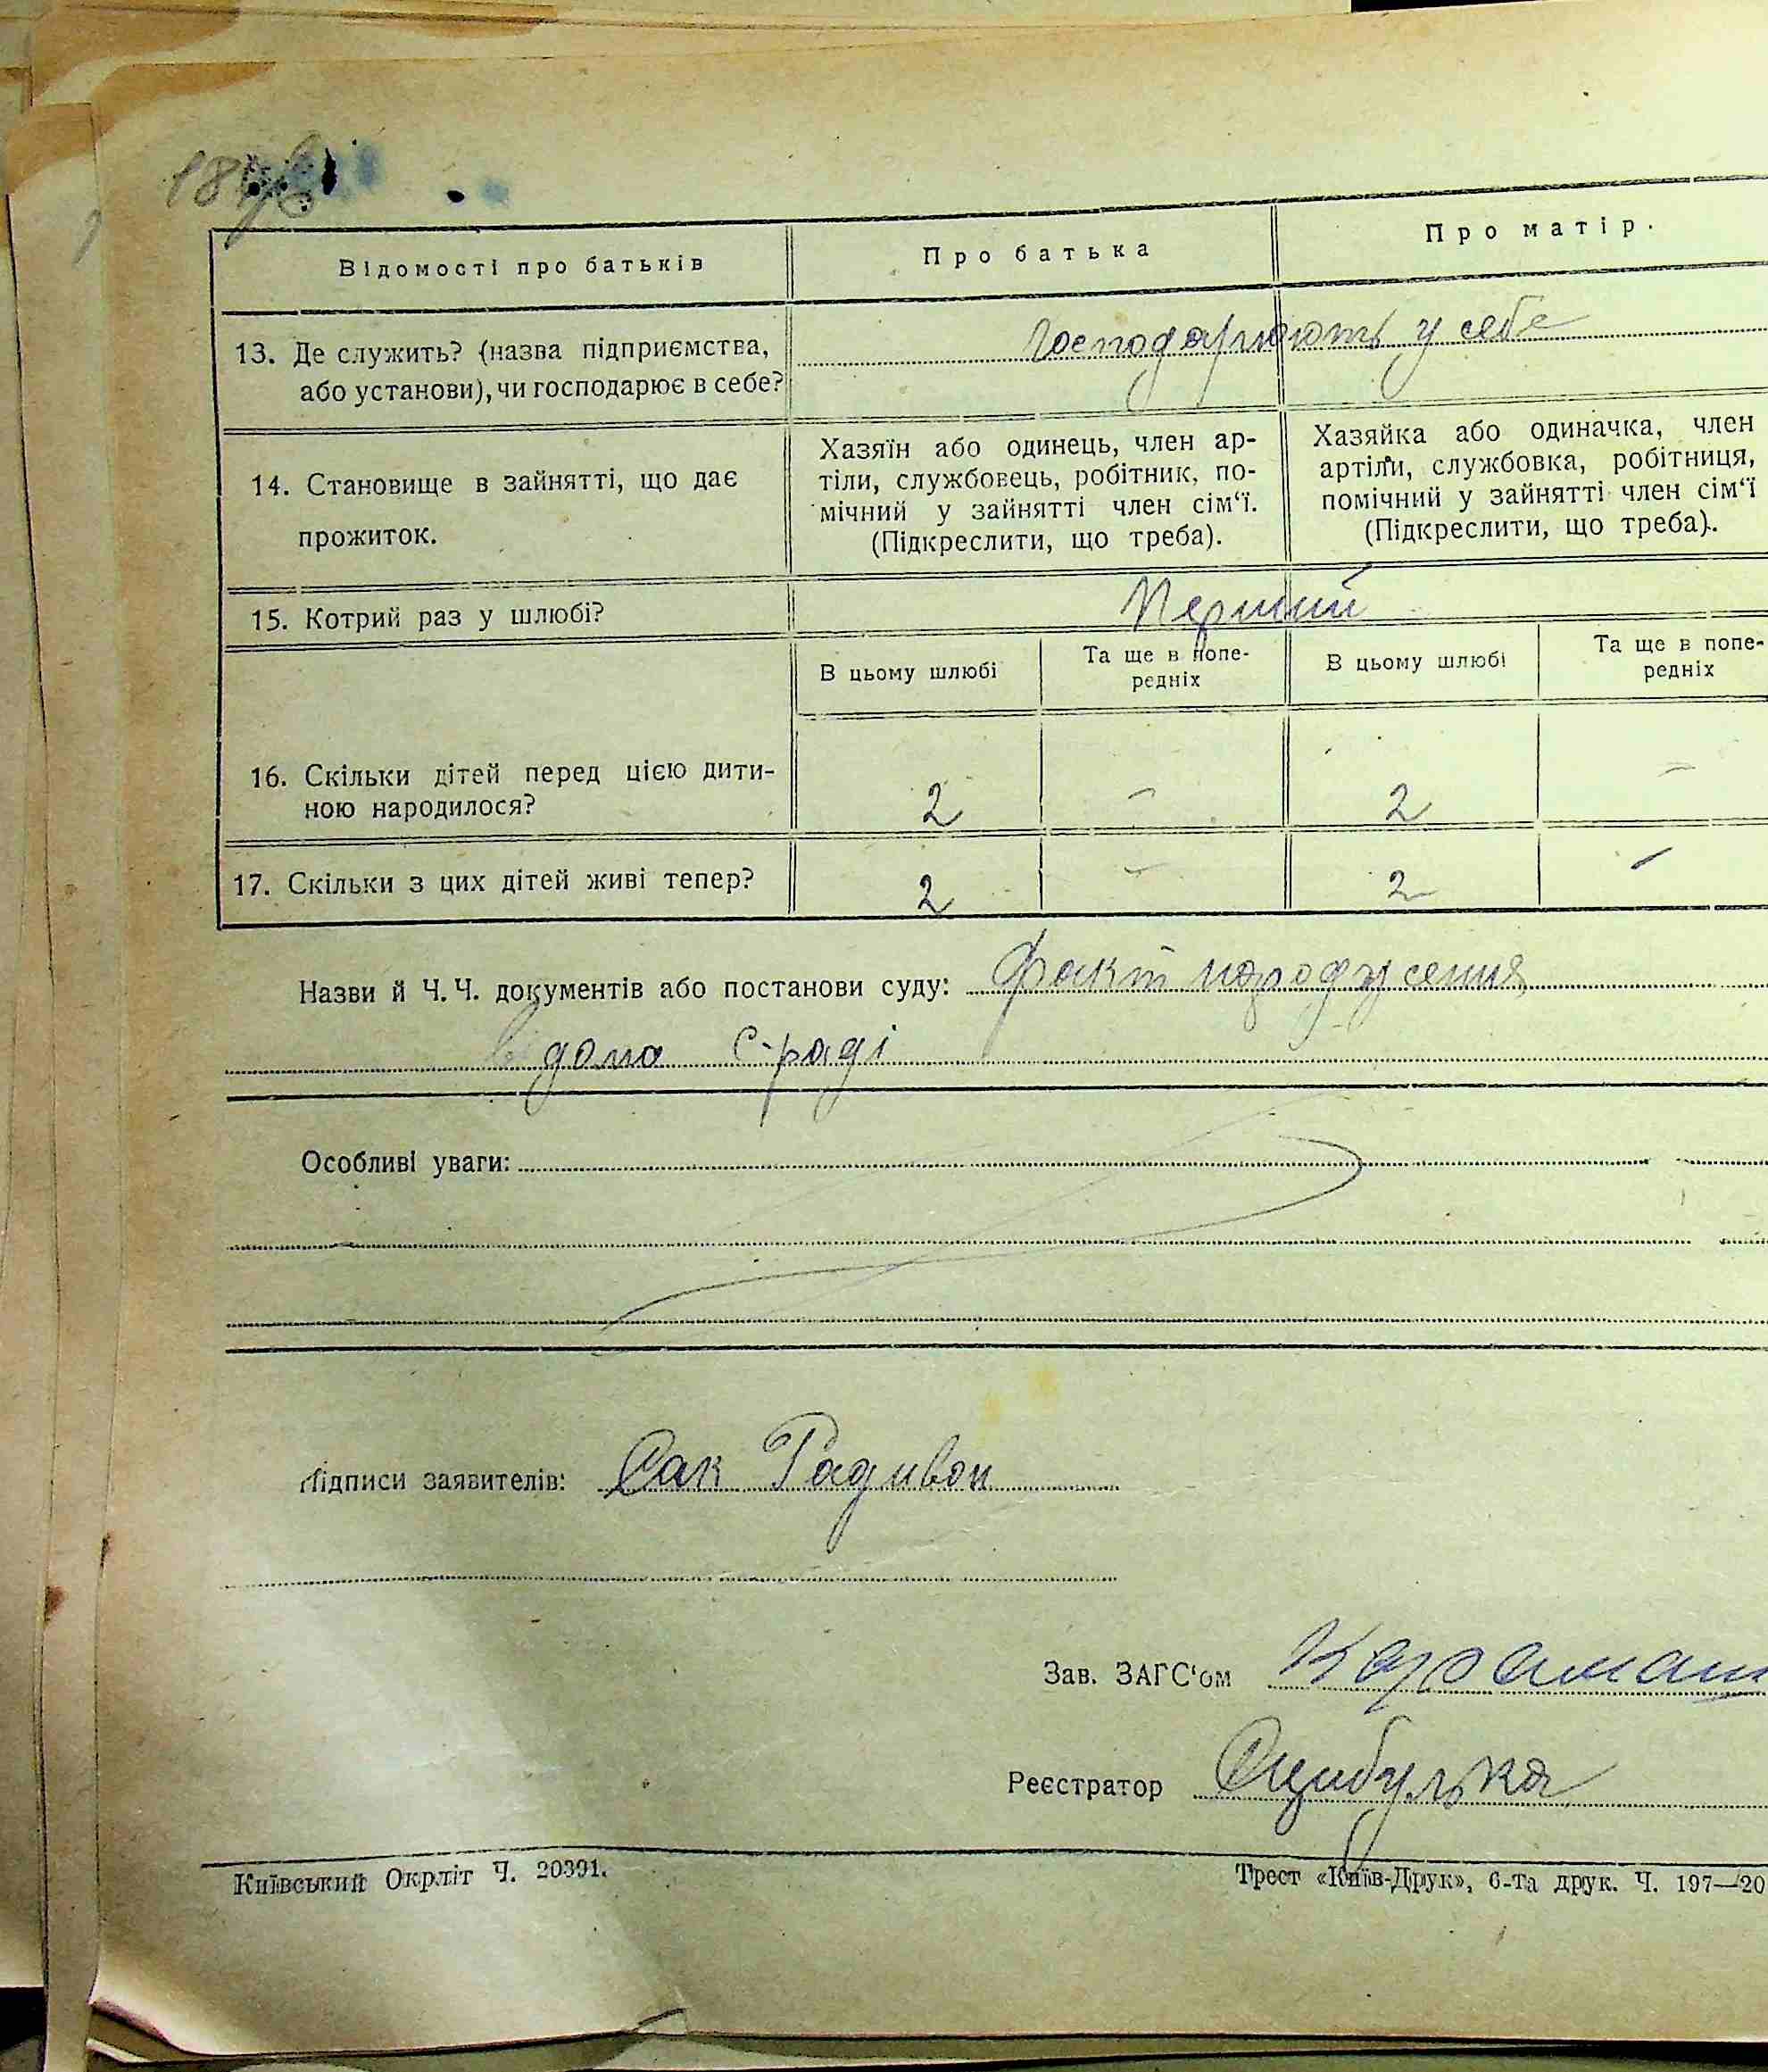 Відомості про батьків
Про батька
Про матір.
13. Де служить? (назва підприємства,
або установи), чи господарює в себе?
господарюють у себе
14. Становище в зайнятті, що дає
прожиток.
Хазяїн або одинець, член ар-
тіли, службовець, робітник, по-
мічний у зайнятті член сім‘ї.
(Підкреслити, що треба).
Хазяйка або одиначка, член
артіли, службовка, робітниця,
помічний у зайнятті член сім‘ї
(Підкреслити, що треба).
15. Котрий раз у шлюбі?
Перший
В цьому шлюбі
Та ще в попе-
редніх
В цьому шлюбі
Та ще в попе-
редніх
16. Скільки дітей перед цією дити-
ною народилося?
2 - 2 -
17. Скільки з цих дітей живі тепер?
2 - 2 -
Назви й Ч. Ч. документів або постанови суду: Факт народження
відома С-раді
Особливі уваги:
Підписи заявителів: Сак Радивон
Зав. ЗАГС‘ом
Реєстратор Сцибулька
Київський Окрліт Ч. 20391.
Трест «Київ-Друк», 6-та друк. Ч. 197—20